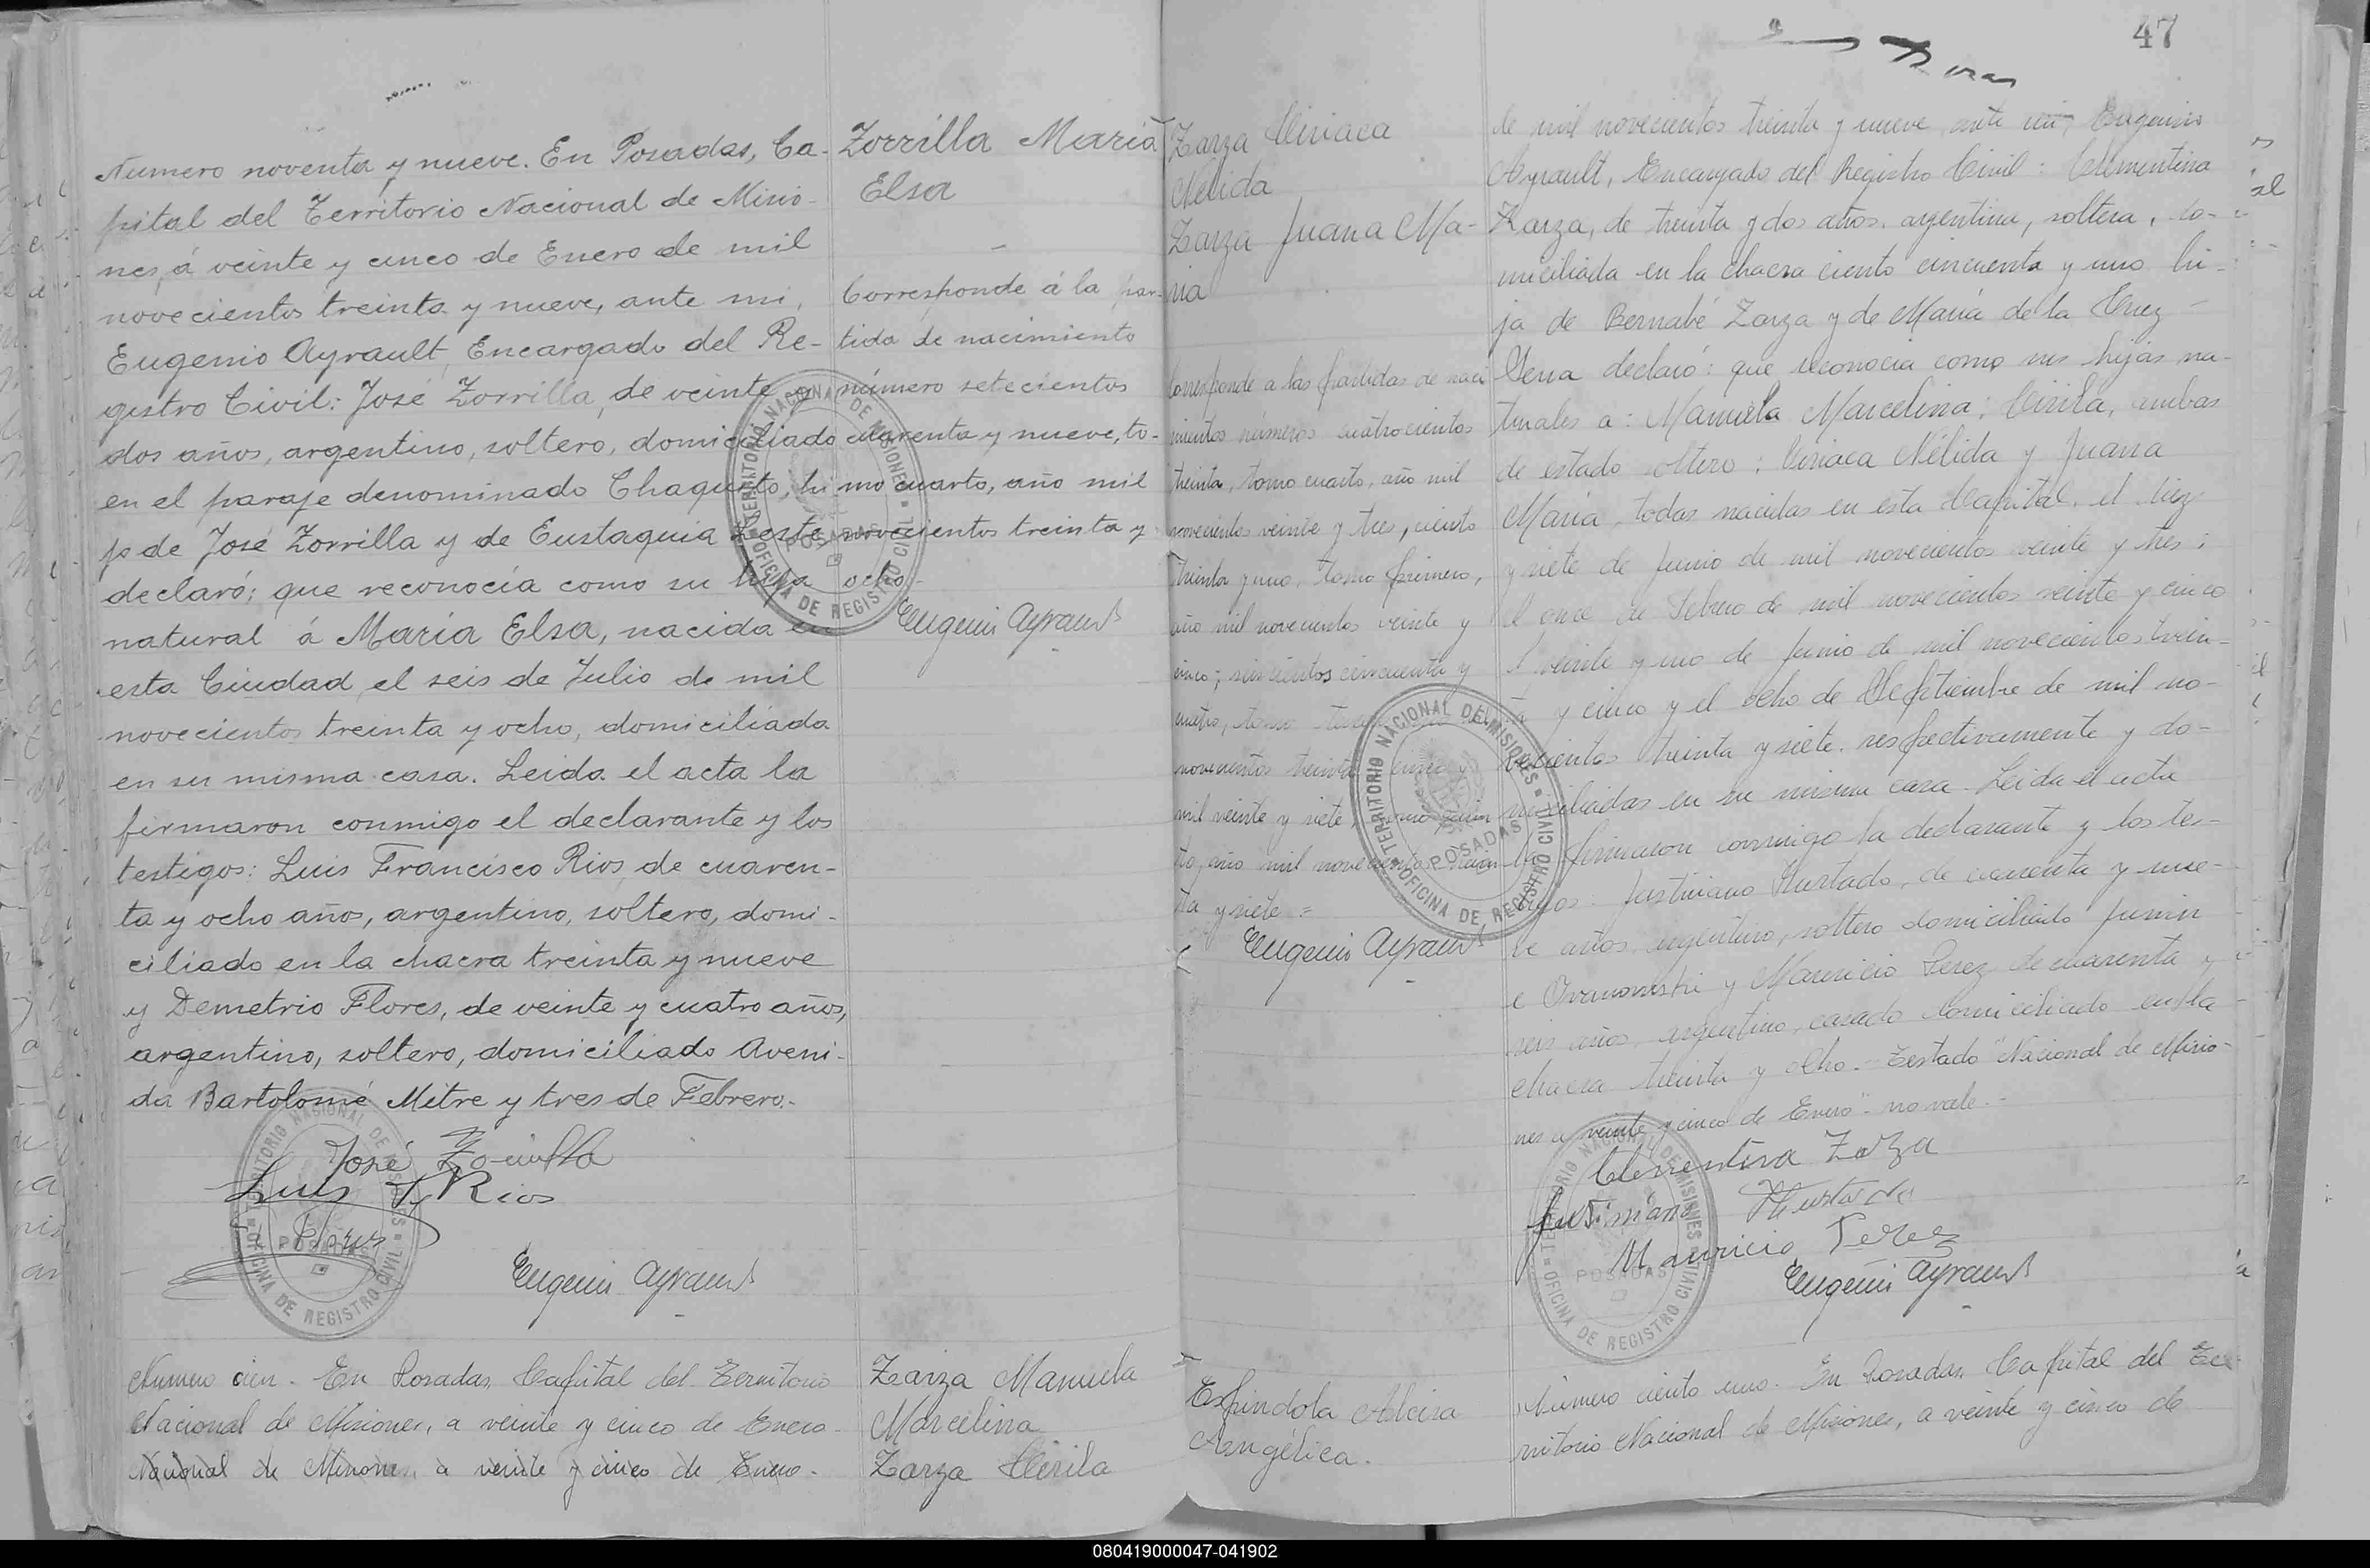 47
Numero noventa y nueve. En Posadas, Ca-
pital del Territorio Nacional de Misio-
nes, á veinte y cinco de Enero de mil
novecientos treinta y nueve, ante mi,
Eugenio Ayrault, Encargado del Re-
gistro Civil: José Zorrilla, de veinte y
dos años, argentino, soltero, domiciliado
en el paraje denominado Chaquito, hi
jo de José Zorrilla y de Eustaquia
declaró; que reconocía como su hija
natural á María Elsa, nacida en
esta Ciudad el seis de Julio de mil
novecientos treinta y ocho, domiciliada
en su misma casa. Leida el acta la
firmaron conmigo el declarante y los
testigos: Luis Francisco Rios, de cuaren-
ta y ocho años, argentino, soltero, domi-
ciliado en la chacra treinta y nueve
y Demetrio Flores, de veinte y cuatro años,
argentino, soltero, domiciliado Aveni-
da Bartolomé Mitre y tres de Febrero.-
José Zorrilla
Luis F Rios
Flores
Eugenio Ayrault
Zorrilla María
Elsa
Corresponde á la par-
tida de nacimiento
número setecientos
cuarenta y nueve, to-
mo cuarto, año mil
novecientos treinta y
ocho.-
Eugenio Ayrault
TERRITORIO NACIONAL DE MISIONES
POSADAS
OFICINA DE REGISTRO CIVIL
Numero cien. En Posadas, Capital del Territorio
Nacional de Misiones, a veinte y cinco de Enero
Nacional de Misiones, a veinte y cinco de Enero.
Zarza Manuela
Marcelina
Zarza Cirila
Zarza Ciriaca
Nélida
Zarza Juana Ma-
ria
Corresponde a las partidas de naci
mientos números cuatrocientos
treinta, tomo cuarto, año mil
novecientos veinte y tres, ciento
treinta y uno, tomo primero,
año mil novecientos veinte y
cinco; seiscientos cincuenta y
cuatro, tomo
novecientos treinta y cinco y
mil veinte y siete, tomo quin
to, año mil novecientos trein
ta y siete =
Eugenio Ayrault
de mil novecientos treinta y nueve, ante mi, Eugenio
Ayrault, Encargado del Registro Civil: Clementina
Zarza, de treinta y dos años, argentina, soltera, do-
miciliada en la chacra ciento cincuenta y uno, hi-
ja de Bernabé Zarza y de María de la Cruz
declaró: que reconocia como sus hijas na-
turales a: Manuela Marcelina; Cirila, ambas
de estado soltero; Ciriaca Nélida y Juana
María, todas nacidas en esta Capital, el diez
y siete de Junio de mil novecientos veinte y tres;
el once de Febrero de mil novecientos veinte y cinco
el veinte y uno de Junio de mil novecientos trein-
ta y cinco y el ocho de Septiembre de mil no-
vecientos treinta y siete, respectivamente y do-
miciliadas en su misma casa. Leida el acta
la firmaron conmigo la declarante y los tes-
tigos: Justiniano Hurtado, de cuarenta y nue-
ve años, argentino, soltero domiciliado Junin
e Ivanowski y Mauricio Perez de cuarenta y
seis años, argentino, casado domiciliado en la
chacra treinta y ocho.- Testado "Nacional de Misio-
nes a veinte y cinco de Enero"- no vale.-
Clementina Zarza
Justiniano Hurtado
Mauricio Perez
Eugenio Ayrault
TERRITORIO NACIONAL DE MISIONES
POSADAS
OFICINA DE REGISTRO CIVIL
Espindola Alcira
Angélica.
Número ciento uno. En Posadas, Capital del Te-
rritorio Nacional de Misiones, a veinte y cinco de
080419000047-041902